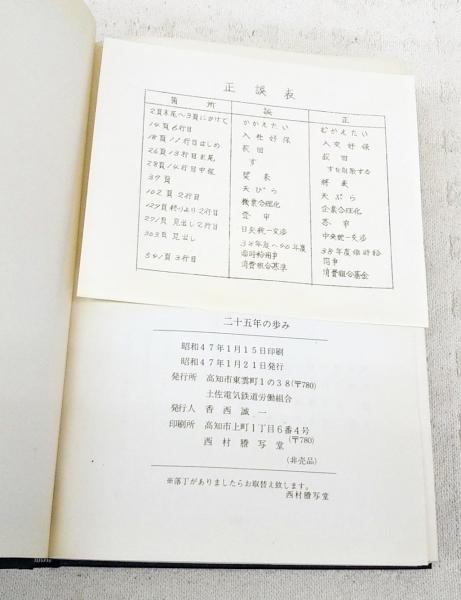 正誤表
箇所 誤 正
2頁末尾へ3頁にかけて かかえたい むかえたい
14頁6行目 入社好保 入交好保
18頁11行目はじめ 荻田 萩田
26頁13行目末尾 す すを削除する
28頁14行目中程
39頁 天びら 天ぷら
102頁2行目 機業合理化 企業合理化
129頁終りより2行目
271頁見出し2行目 日央統一交渉 中央統一交渉
303頁見出し 38年度〜40年度
541頁3行目 消費組合基準 消費組合基金
二十五年の歩み
昭和47年1月15日印刷
昭和47年1月21日発行
発行所 高知市東雲町1の38(〒780)
土佐電気鉄道労働組合
発行人 香西誠一
印刷所 高知市上町1丁目6番4号
西村謄写堂(〒780)
(非売品)
※落丁がありましたらお取替え致します。
西村謄写堂